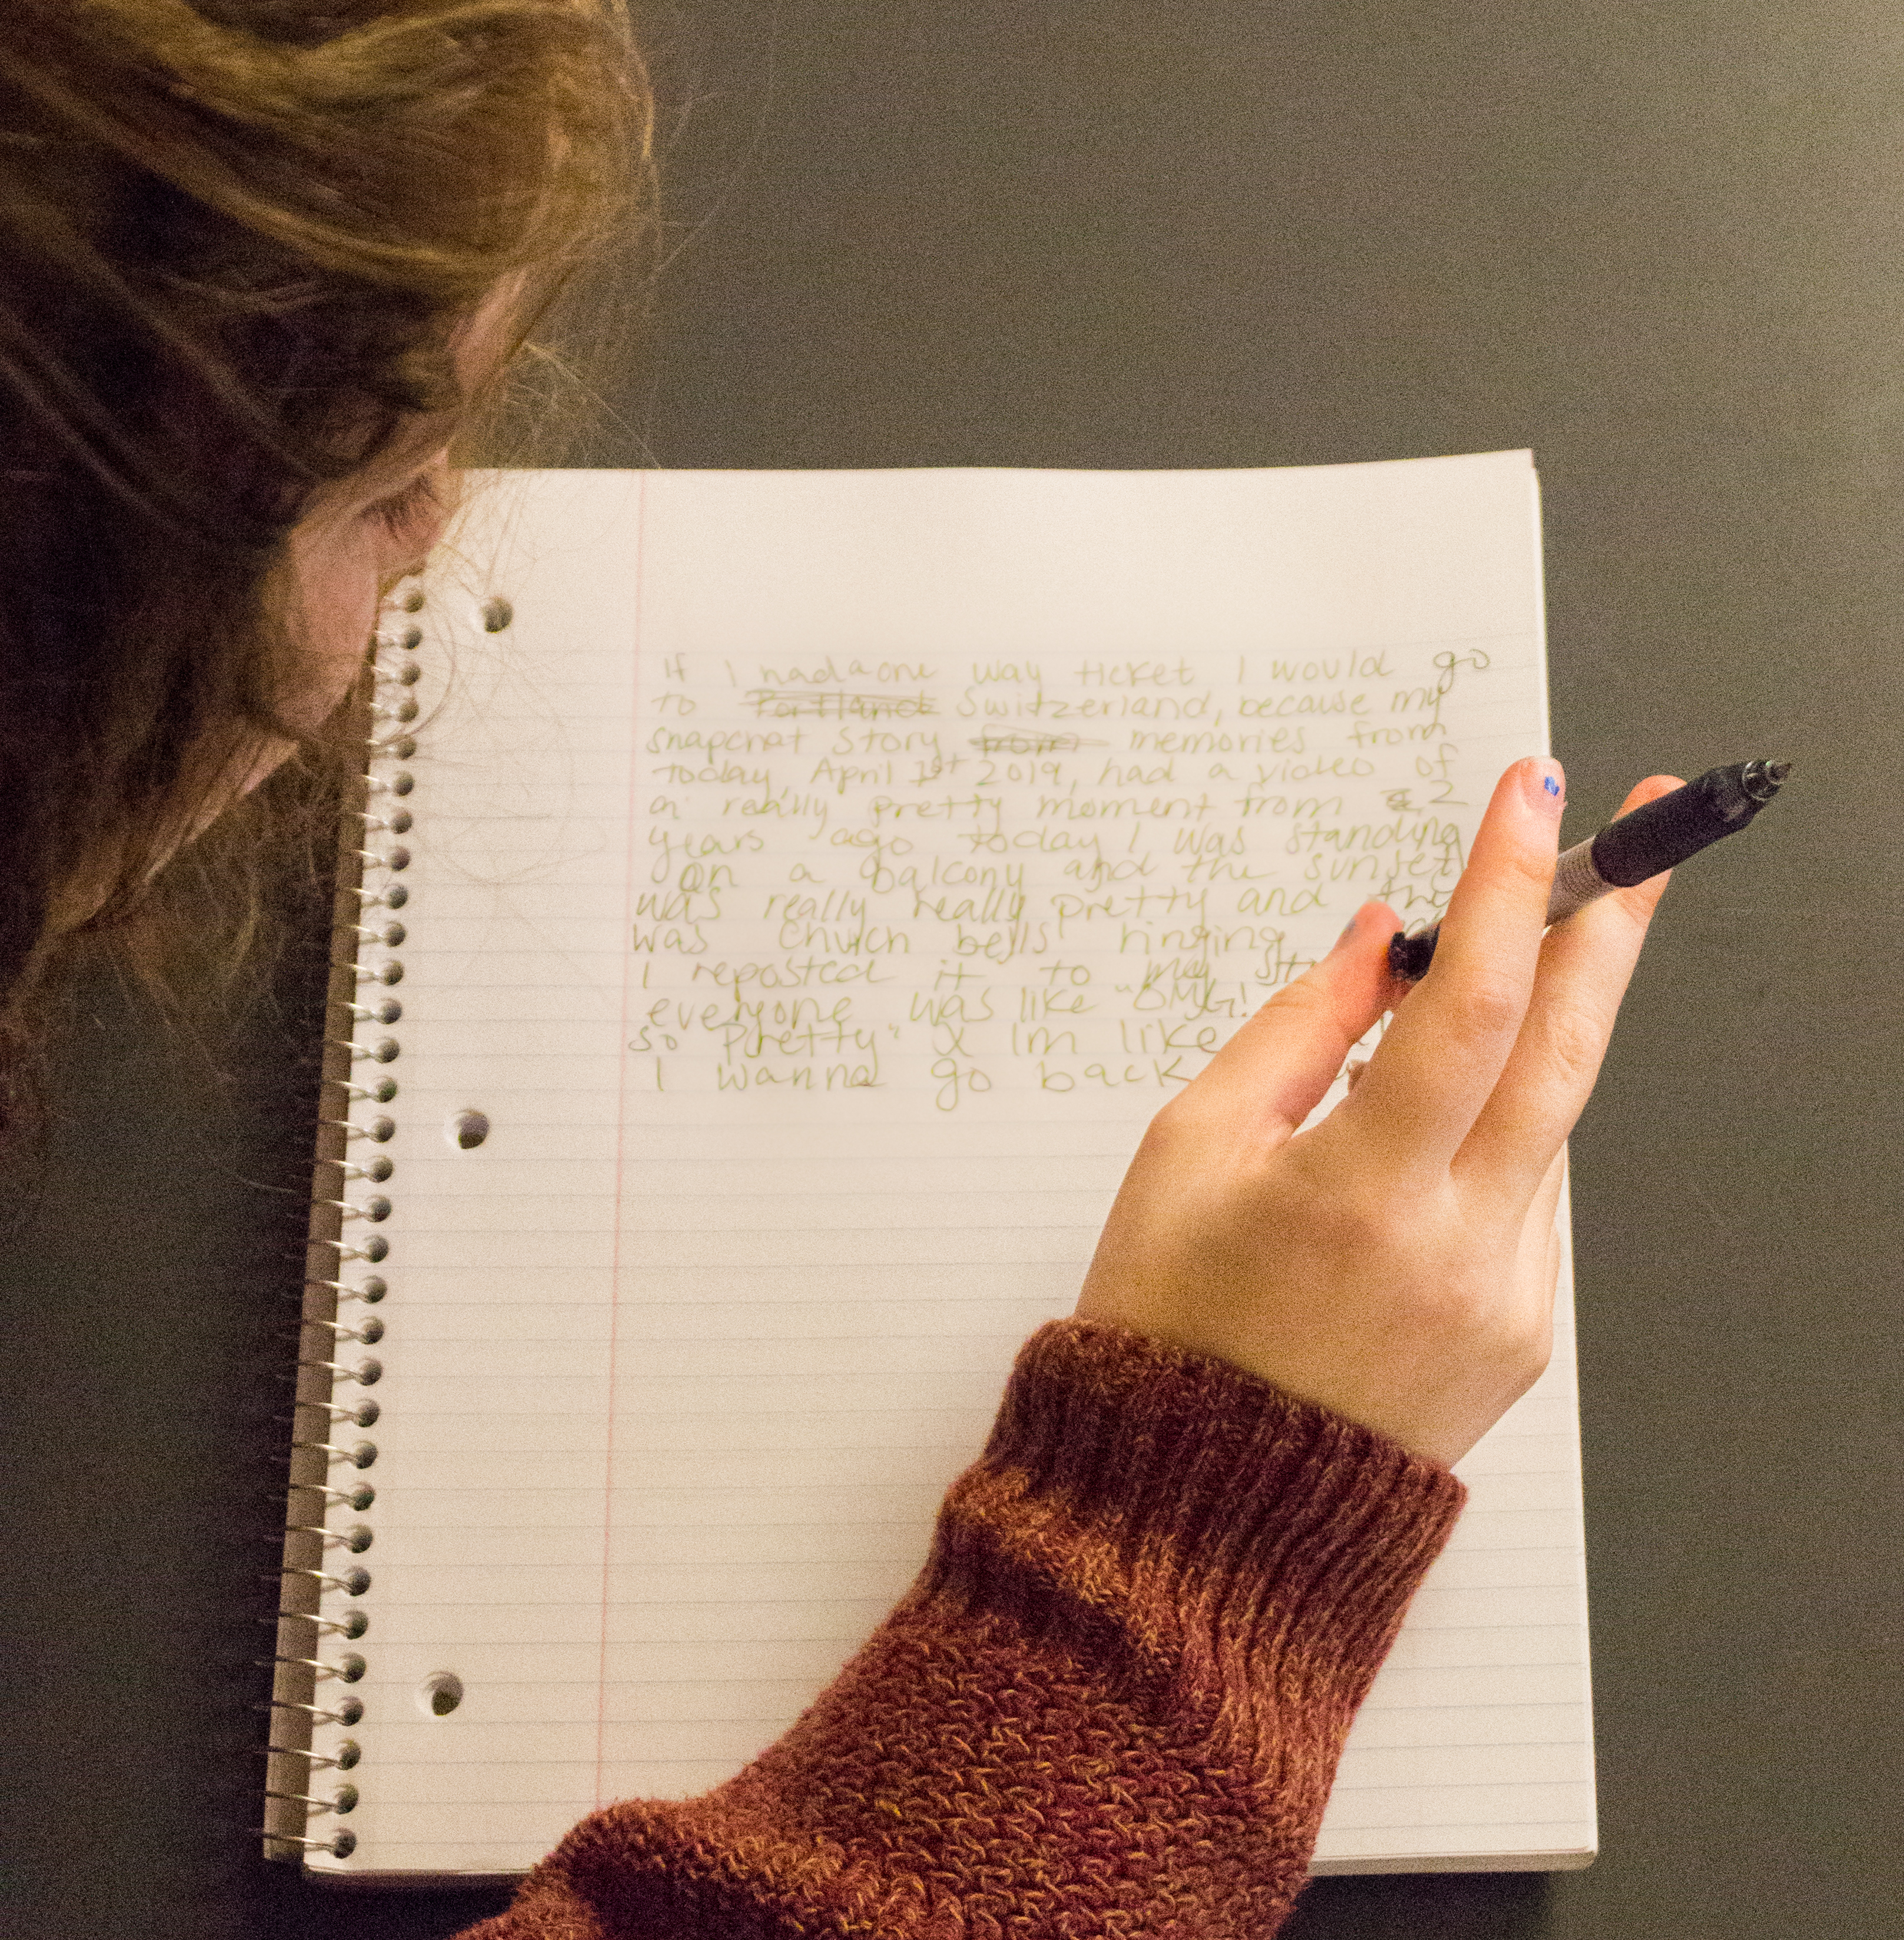 If I had a one way ticket I would go
to Portland Switzerland, because my
snapchat story from memories from
today, April 1st 2019, had a video of
a really pretty moment from 2
years ago today I was standing
on a balcony and the sunset
was really really pretty and the
was church bells ringing
I reposted it to my
everyone was like "OMG!
so pretty" & Im like
I wanna go back